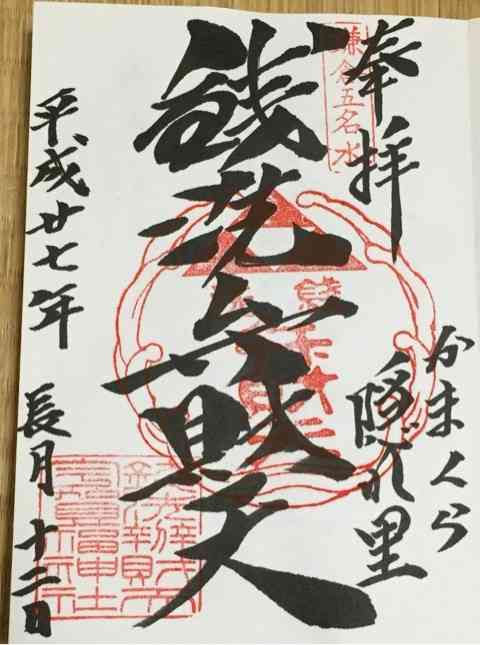 奉拝
鎌倉五名水
かまくら
隠れ里
銭洗弁財天
平成廿七年
長月 十二日